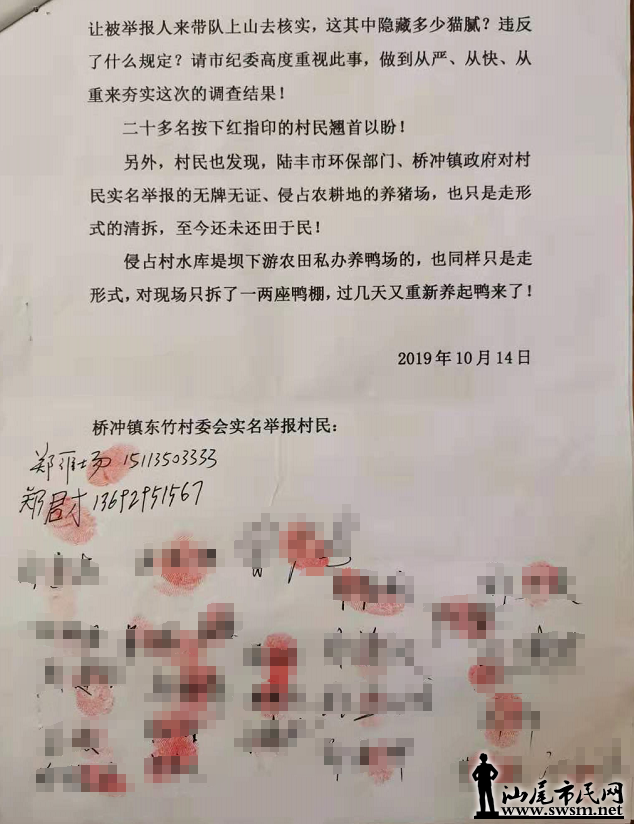 让被举报人来带队上山去核实，这其中隐藏多少猫腻？违反
了什么规定？请市纪委高度重视此事，做到从严、从快、从
重来夯实这次的调查结果！
二十多名按下红指印的村民翘首以盼！
另外，村民也发现，陆丰市环保部门、桥冲镇政府对村
民实名举报的无牌无证、侵占农耕地的养猪场，也只是走形
式的清拆，至今还未还田于民！
侵占村水库堤坝下游农田私办养鸭场的，也同样只是走
形式，对现场只拆了一两座鸭棚，过几天又重新养起鸭来了！
2019年10月14日
桥冲镇东竹村委会实名举报村民：
郑 15113503333
郑君才 13692951567
汕尾市民网
www.swsm.net